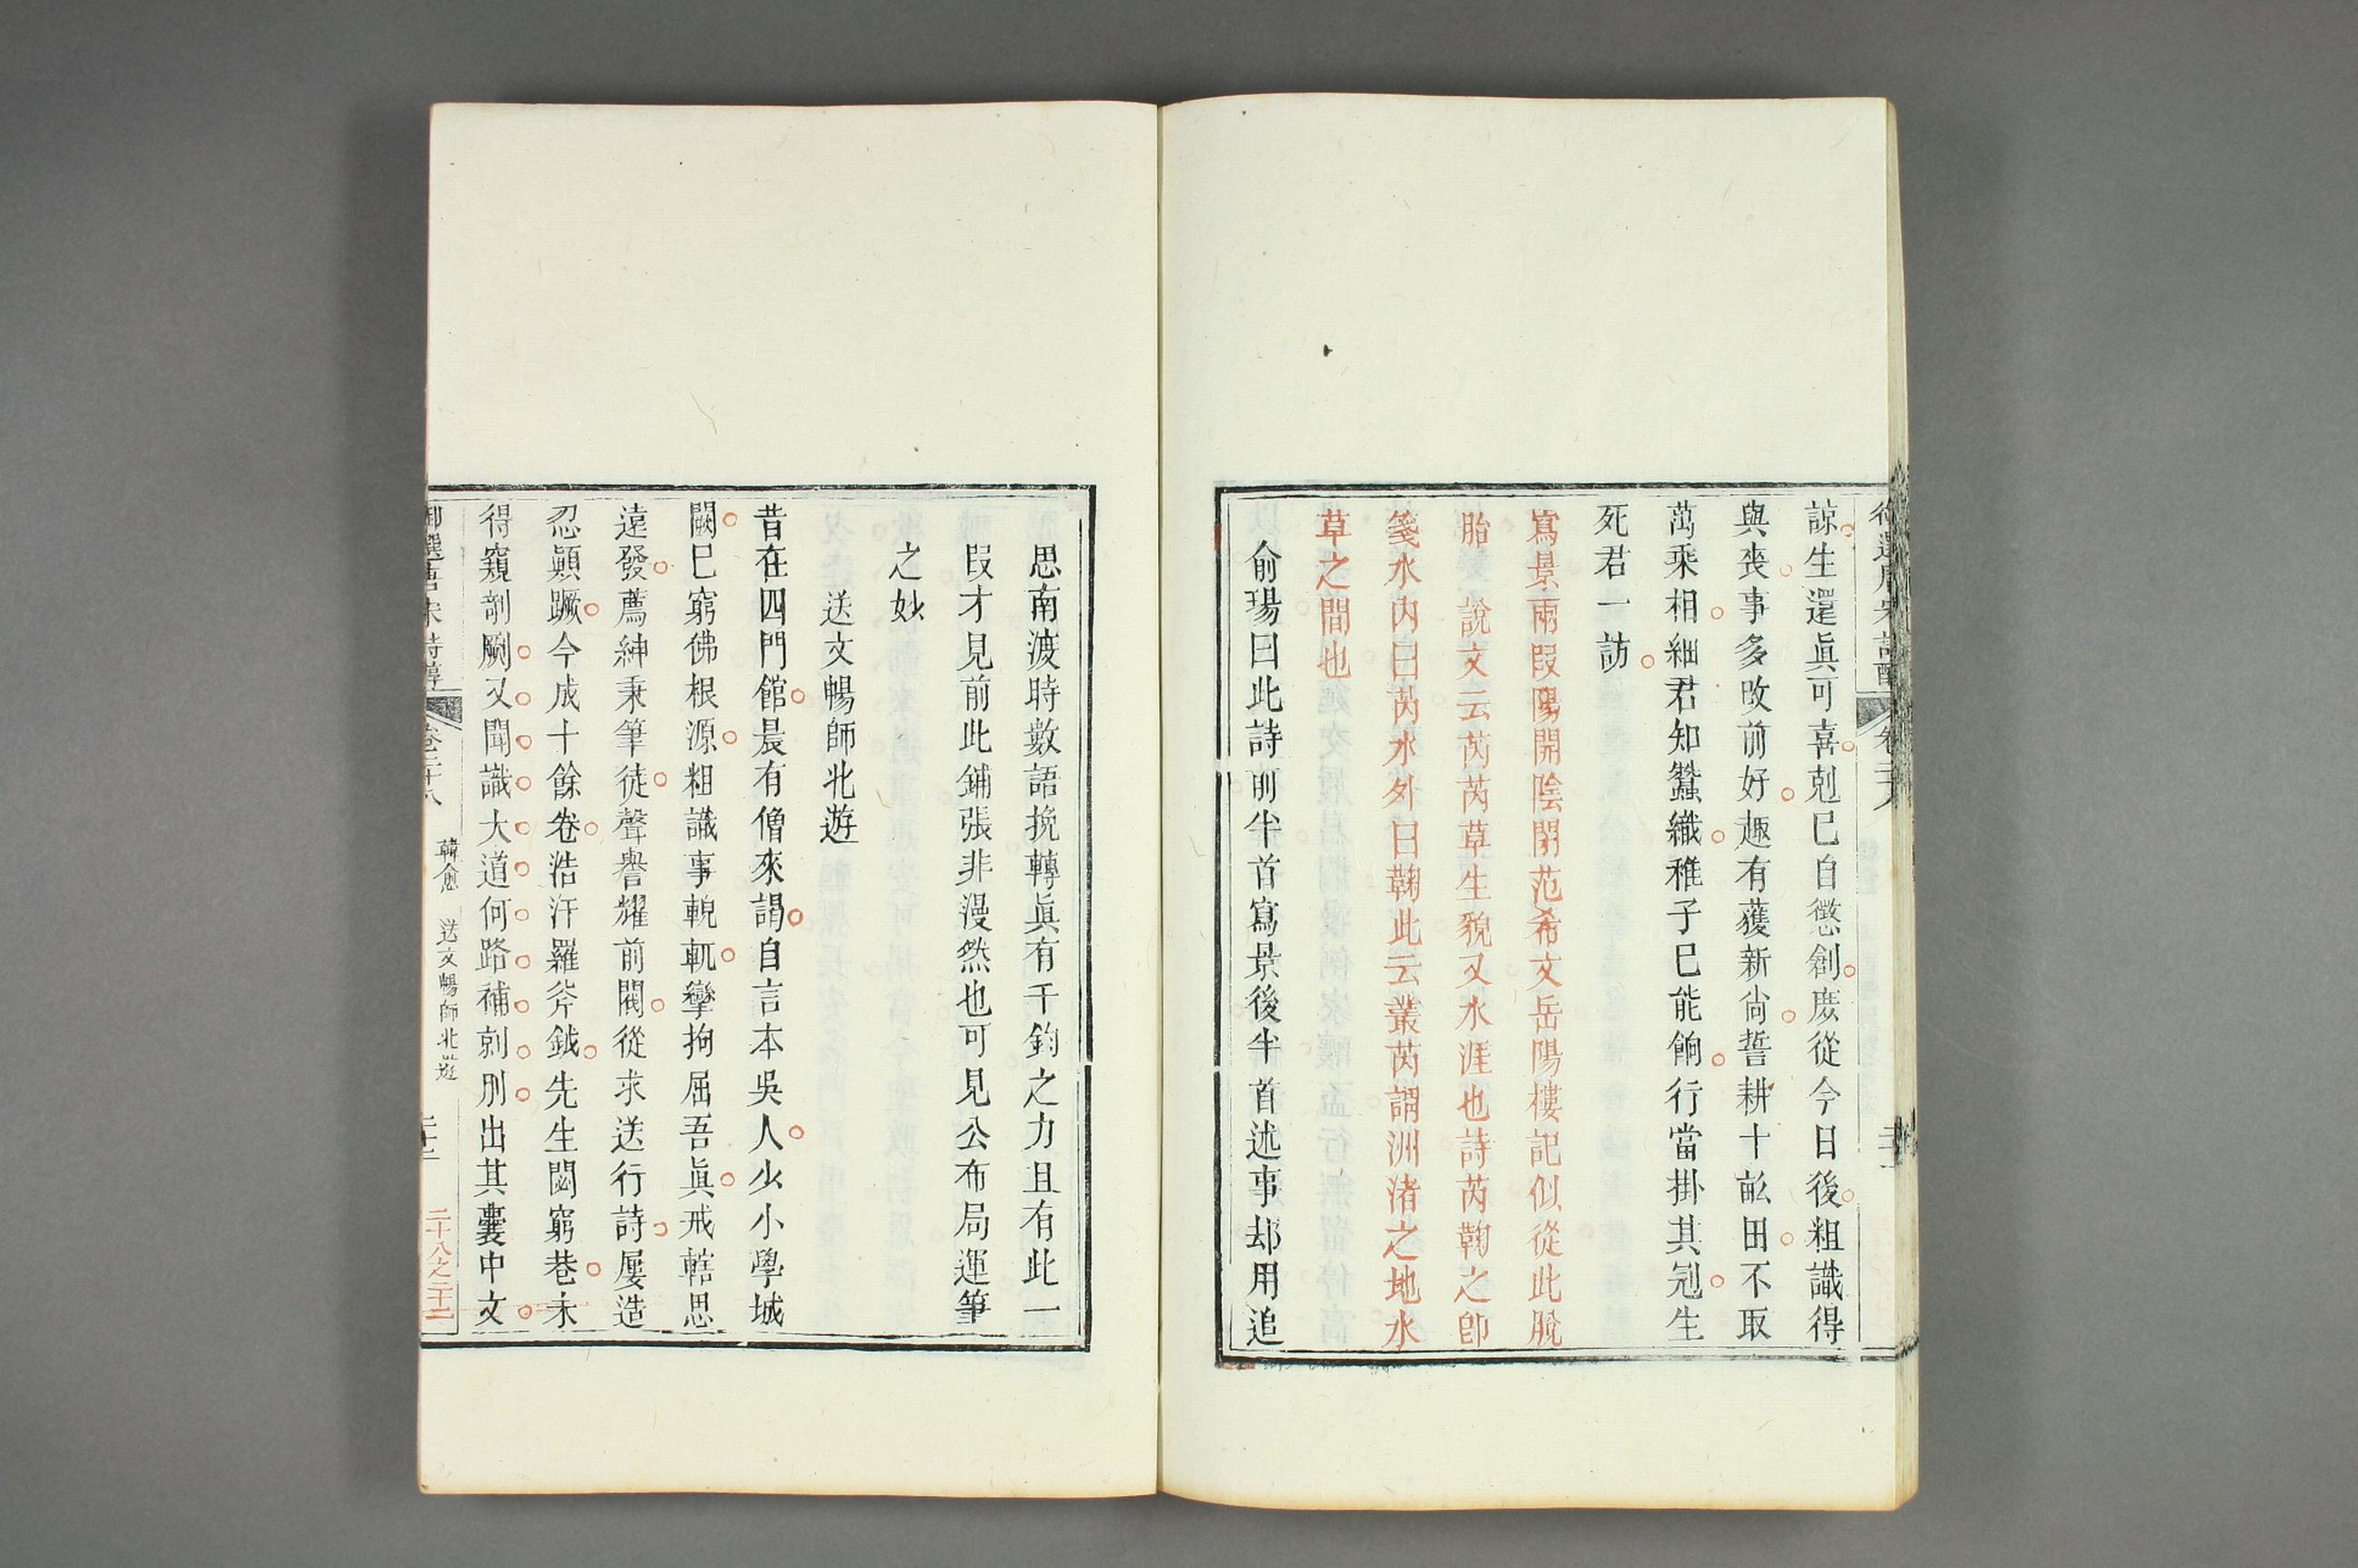 諒生還眞可喜剋己自懲創庻從今日後粗識得
與喪事多攺前好趣有蘊新尙誓耕十畝田不取
萬乘相細君知蠶織稚子巳能餉行當掛其冠生
死君一訪
寫景兩段陽開陰閉范希文岳陽樓記似從此脫
胎　說文云芮芮草生貌又水涯也詩芮鞫之卽
箋水內曰芮水外曰鞫此云叢芮謂洲渚之地水
草之間也
俞瑒曰此詩前半首寫景後半首述事却用追
思南渡時數語挽轉眞有千鈞之力且有此一
段才見前此鋪張非漫然也可見公布局運筆
之妙
送文暢師北遊
昔在四門館晨有僧來謁自言本吳人少小學城
闕巳窮佛根源粗識事輗軏攣拘屈吾眞戒轄思
遠發薦紳秉筆徒聲譽耀前閥從求送行詩屢造
忍顚蹶今成十餘卷浩汗羅斧鉞先生閟窮巷未
得窺剞劂又聞識大道何路補剠刖出其囊中文
御選唐宋詩醇
卷二十八
韓愈　送文暢師北遊
二十二
二十八之二十二